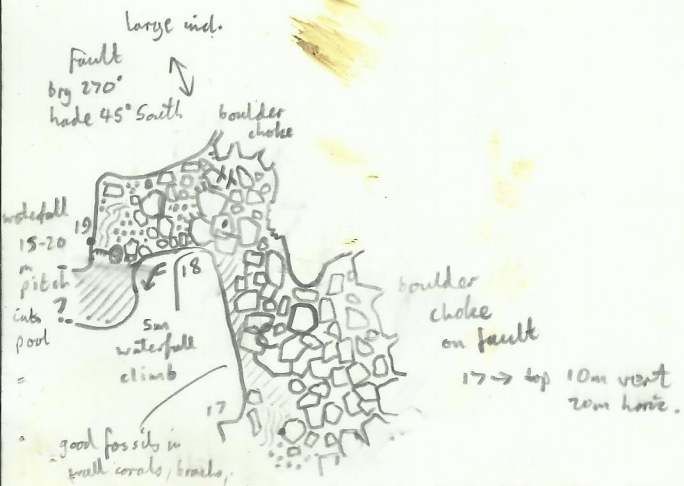 large incl.
Fault
brg 270°
hade 45° South
boulder
choke
waterfall
15-20
m
pitch
?
into
pool
19
18
5m
waterfall
climb
boulder
choke
on fault
17 → top 10m vert
20m horiz.
17
good fossils in
wall corals, brachs,